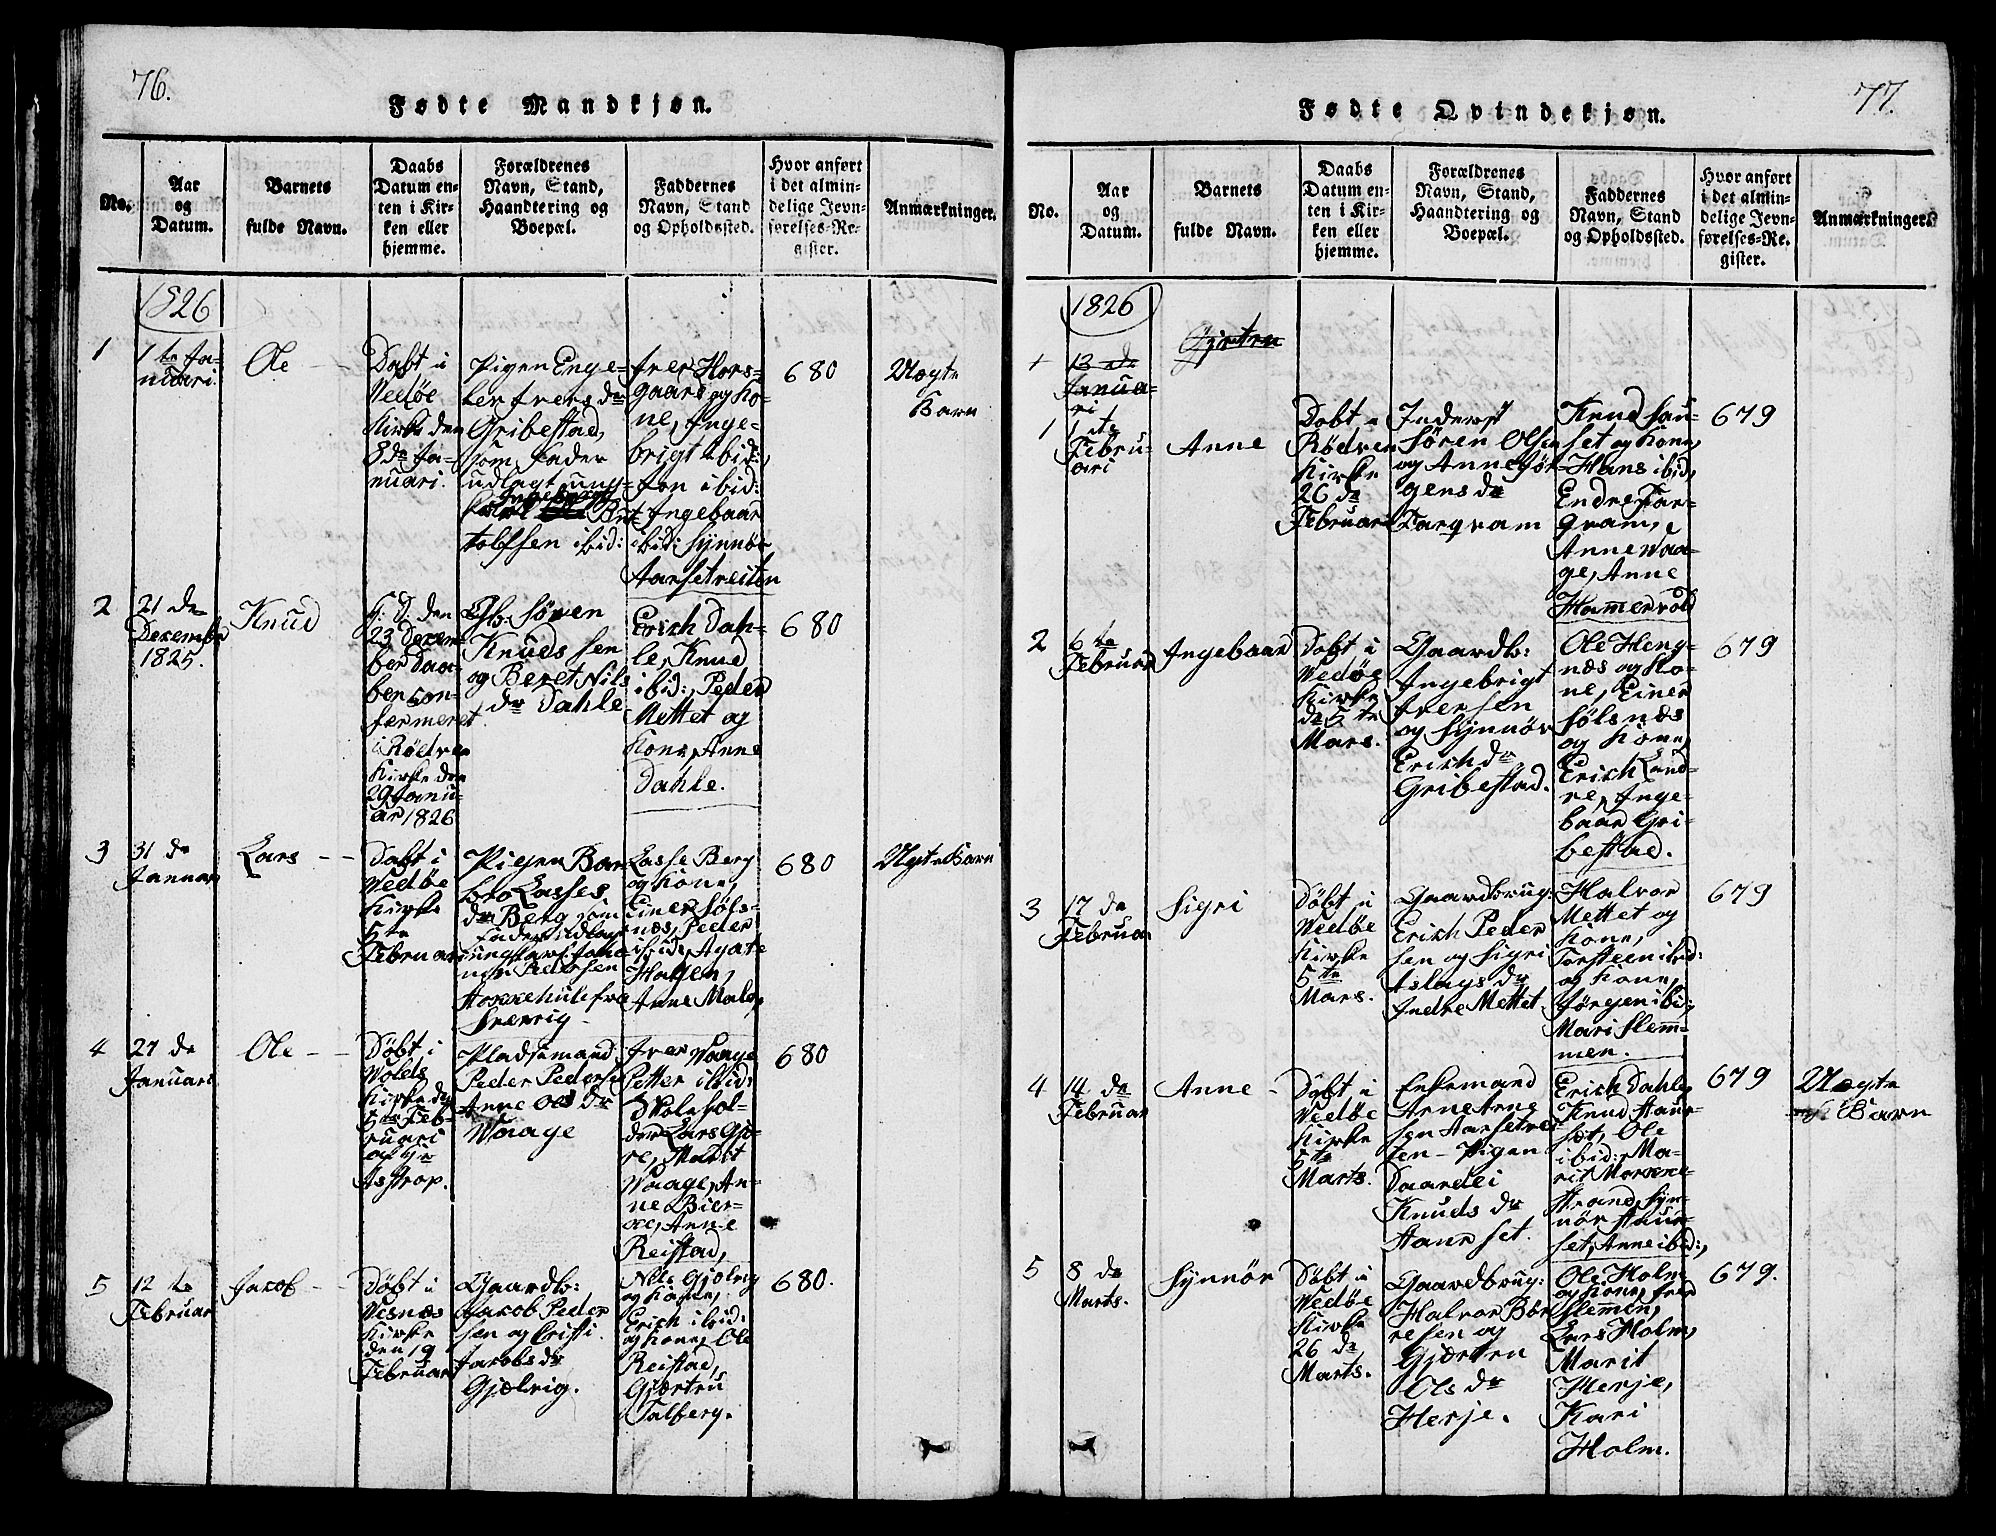 76.
Fødte Mandkjøn.
No.
Aar
og
Datum.
Barnets
fulde Navn.
Daabs
Datum en-
ten i Kir-
ken eller
hjemme.
Forældrenes
Navn, Stand,
Haandtering og
Boepæl.
Faddernes
Navn, Stand
og Opholdssted.
Hvor anført
i det almin-
delige Jevn-
førelses-Re-
gister.
Anmærkninger.
1826
1
1te Ja-
nuari.
Ole
Døbt i
Vedøe
Kirke den
8de Ja-
nuari.
Pigen Enge-
ber Ivers dr
Gribestad,
som Fader
udlagt ung-
karl Ingebrigt
Bret
tolfsen ibid:
Iver Hors-
gaard og Ko-
ne, Inge-
brigt ibid:,
Jon ibid:
Ingebaar
ibid: Synnøv
Aarsetreiten
680
Uægte
Barn
2
21 de
Decembr
1825.
Knud
H: D: den
23 Decem-
ber Daa-
ben con-
fermeret
i Rødven
Kirke den
29 Janu-
ar 1826
Gb: Søren
Knuds sen
og Beret Nils
dr Dahle
Erich Dah-
le, Knud
ibid:, Peder
Mettet og
Kone, Anne
Dahle.
680
3
31 de
Januar
Lars
Døbt i
Vedøe
Kirke
5te
Februar
Pigen Bar
bro Lasses
dr Berg som
Fader udlagt
ungkarl Joha-
nes Pedersen
Stokkehule fra
Sverrig
Lasse Berg
og Kone,
Einer Søls-
næs, Peder
ibid:, Agate
Hagen,
Anne Malo,
680
Uægte Barn
4
27 de
Januari
Ole
Døbt i
Wolds
Kirke d
5te Feb-
ruari
af Hr
Astrop.
Pladsemand
Peder Peders
Anne Ols dr
Waage
Iver Waage
Petter ibid:
Skolehol-
der Lars Gjø-
re, Marit
Waage, An-
ne Bier-
ke, Anne
Reistad,
680
5
12 te
Februar
Jacob
Døbt i
Vesnæs
Kirke
den 19
Februar
Gaardb:
Jacob Peder
sen og Cristi
Jacobs dr
Gjølvig.
Nils Gjølvig
og Kone,
Erich ibid:
og Kone, Ole
Reistad,
Gjærtru
Talberg.
680.
77.
Fødte Qvindekjøn.
No.
Aar
og
Datum.
Barnets
fulde Navn.
Daabs
Datum en-
ten i Kir-
ken eller
hjemme.
Forældrenes
Navn, Stand,
Haandtering og
Boepæl.
Faddernes
Navn, Stand
og Opholdssted.
Hvor anført
i det almin-
delige Jevn-
førelses-Re-
gister.
Anmærkninger.
1826
13 de
Janua-
ri
Gjertru
1
1 ste
Febru-
ari
Anne
Døbt i
Rødven
Kirke
26 de
Februar
Inderst
Søren Olsen
og Anne Jør-
gens dr
Targram
Knud Sau-
set og Kone,
Hans ibid,
Endre Tar-
gram,
Anne Waa-
ge, Anne
Hamervold
679
2
6 te
Februar
Ingebaar
Døbt i
Vedøe
Kirke
d 5 te
Mars.
Gaardb:
Ingebrigt
Iversen
og Synnøv
Erich dr
Gribestad.
Ole Heng-
næs og Ko-
ne, Einer
Sølsnæs
og Kone,
Erich Land-
re, Inge-
baar Gri-
bestad.
679
3
17 de
Februar
Sigri
Døbt i
Vedøe
Kirke
5te
Mars.
Gaardbrug:
Erich Peder
sen og Sigri
Aslags dr
Indre Mettet
Halvor
Mettet og
Kone,
Torsteen ibid:
og Kone,
Jørgen ibid:,
Mari Slem-
men.
679
4
14 de
Februar
Anne
Døbt i
Vedøe
Kirke
5te
Marts.
Enkemand
Arne Arne
sen Aarsetrei
ten - Pigen
Daardei
Knuds dr
Staurset.
Erich Dahle,
Knud Staur-
set, Ole
ibid:, Ma-
rit Mørkke-
strand, Syn-
nør Staur-
set, Anne ibid:,
679
Uægte
Barn
5
8 de
Marts.
Synnør
Døbt i
Vedøe
Kirke
26 de
Marts.
Gaardbrug:
Halvor Bør
resen og
Gjærtru
Ols dr
Herje.
Ole Holm
og Kone, Iver
Slemen,
Lars Holm,
Marit
Herje,
Kari
Holm.
679.